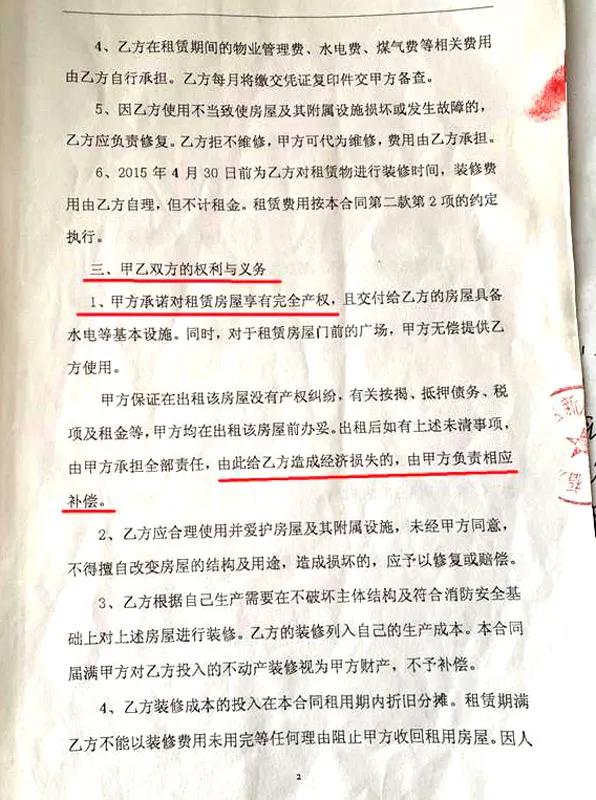 4、乙方在租赁期间的物业管理费、水电费、煤气费等相关费用
由乙方自行承担。乙方每月将缴交凭证复印件交甲方备查。
5、因乙方使用不当致使房屋及其附属设施损坏或发生故障的，
乙方应负责修复。乙方拒不维修，甲方可代为维修，费用由乙方承担。
6、2015年4月30日前为乙方对租赁物进行装修时间，装修费
用由乙方自理，但不计租金。租赁费用按本合同第二款第2项的约定
执行。
三、甲乙双方的权利与义务
1、甲方承诺对租赁房屋享有完全产权，且交付给乙方的房屋具备
水电等基本设施。同时，对于租赁房屋门前的广场，甲方无偿提供乙
方使用。
甲方保证在出租该房屋没有产权纠纷，有关按揭、抵押债务、税
项及租金等，甲方均在出租该房屋前办妥。出租后如有上述未清事项，
由甲方承担全部责任，由此给乙方造成经济损失的，由甲方负责相应
补偿。
2、乙方应合理使用并爱护房屋及其附属设施，未经甲方同意，
不得擅自改变房屋的结构及用途，造成损坏的，应予以修复或赔偿。
3、乙方根据自己生产需要在不破坏主体结构及符合消防安全基
础上对上述房屋进行装修。乙方的装修列入自己的生产成本。本合同
届满甲方对乙方投入的不动产装修视为甲方财产，不予补偿。
4、乙方装修成本的投入在本合同租用期内折旧分摊。租赁期满
乙方不能以装修费用未用完等任何理由阻止甲方收回租用房屋。因人
2